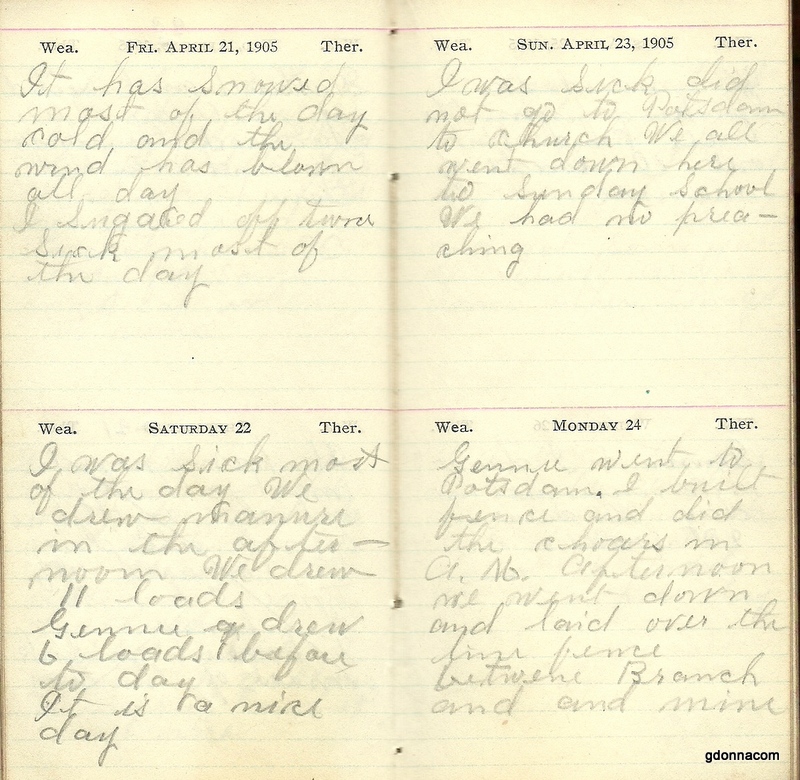 Wea. FRI. APRIL 21, 1905 Ther.
It has snowed
most of the day
cold and the
wind has blown
all day
I sugared off twice
Sick most of
the day
Wea. SATURDAY 22 Ther.
I was Sick most
of the day We
drew manure
in the after-
noon We drew
11 loads
Gennie drew
6 loads before
to day
It is a nice
day
Wea. SUN. APRIL 23, 1905 Ther.
I was Sick did
not go to Potsdam
to church We all
went down here
to Sunday School
We had no prea-
ching
Wea. MONDAY 24 Ther.
Gennie went to
Potsdam. I built
fence and did
the choars in
A. M. Afternoon
we went down
and laid over the
line fence
betwene Branch
and and mine
gdonnacom